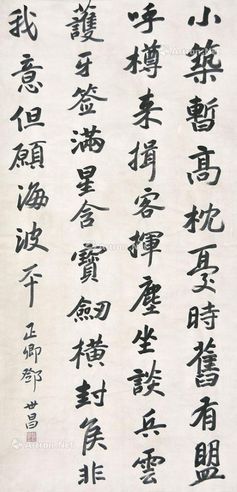 小築暫高枕憂時舊有盟
呼樽来揖客揮麈坐談兵雲
護牙签滿星含寶劔橫封矦非
我意但願海波平
正卿鄧世昌